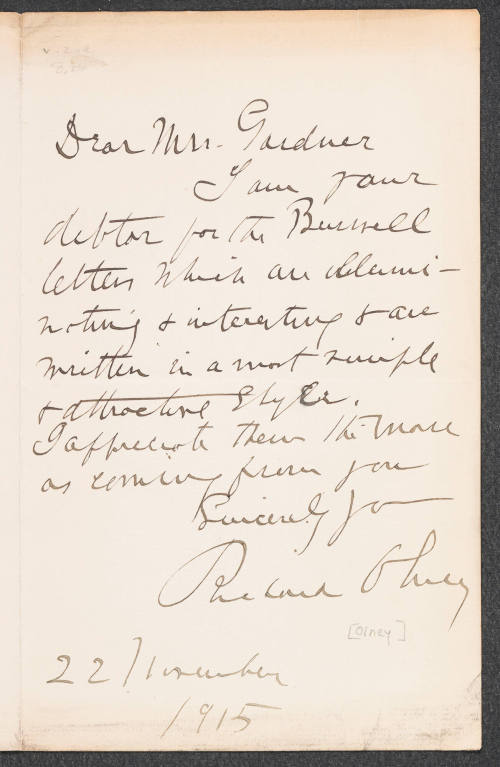 Dear Mrs. Gardner
I am your
debtor for the Burwell
letters which are illumi-
nating & interesting & are
written in a most simple
& attractive style.
I appreciate them the more
as coming from you
Sincerely yo
Richard Olney
[Olney]
22 November
1915